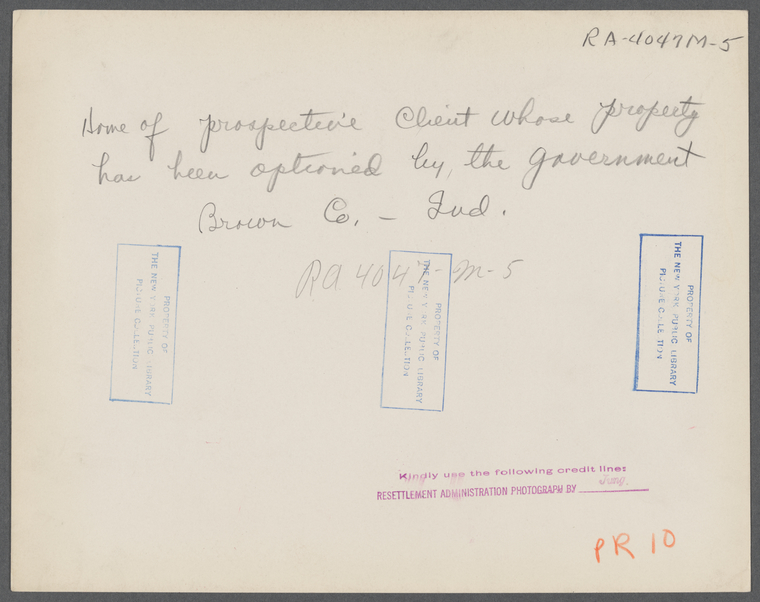 RA-4047M-5
Home of prospective Client whose property
has been optioned by, the government
Brown Co. - Ind.
RA 4047-M-5
PROPERTY OF
THE NEW YORK PUBLIC LIBRARY
PICTURE COLLECTION
PROPERTY OF
THE NEW YORK PUBLIC LIBRARY
PICTURE COLLECTION
PROPERTY OF
THE NEW YORK PUBLIC LIBRARY
PICTURE COLLECTION
Kindly use the following credit line:
RESETTLEMENT ADMINISTRATION PHOTOGRAPH BY Jung.
PR 10